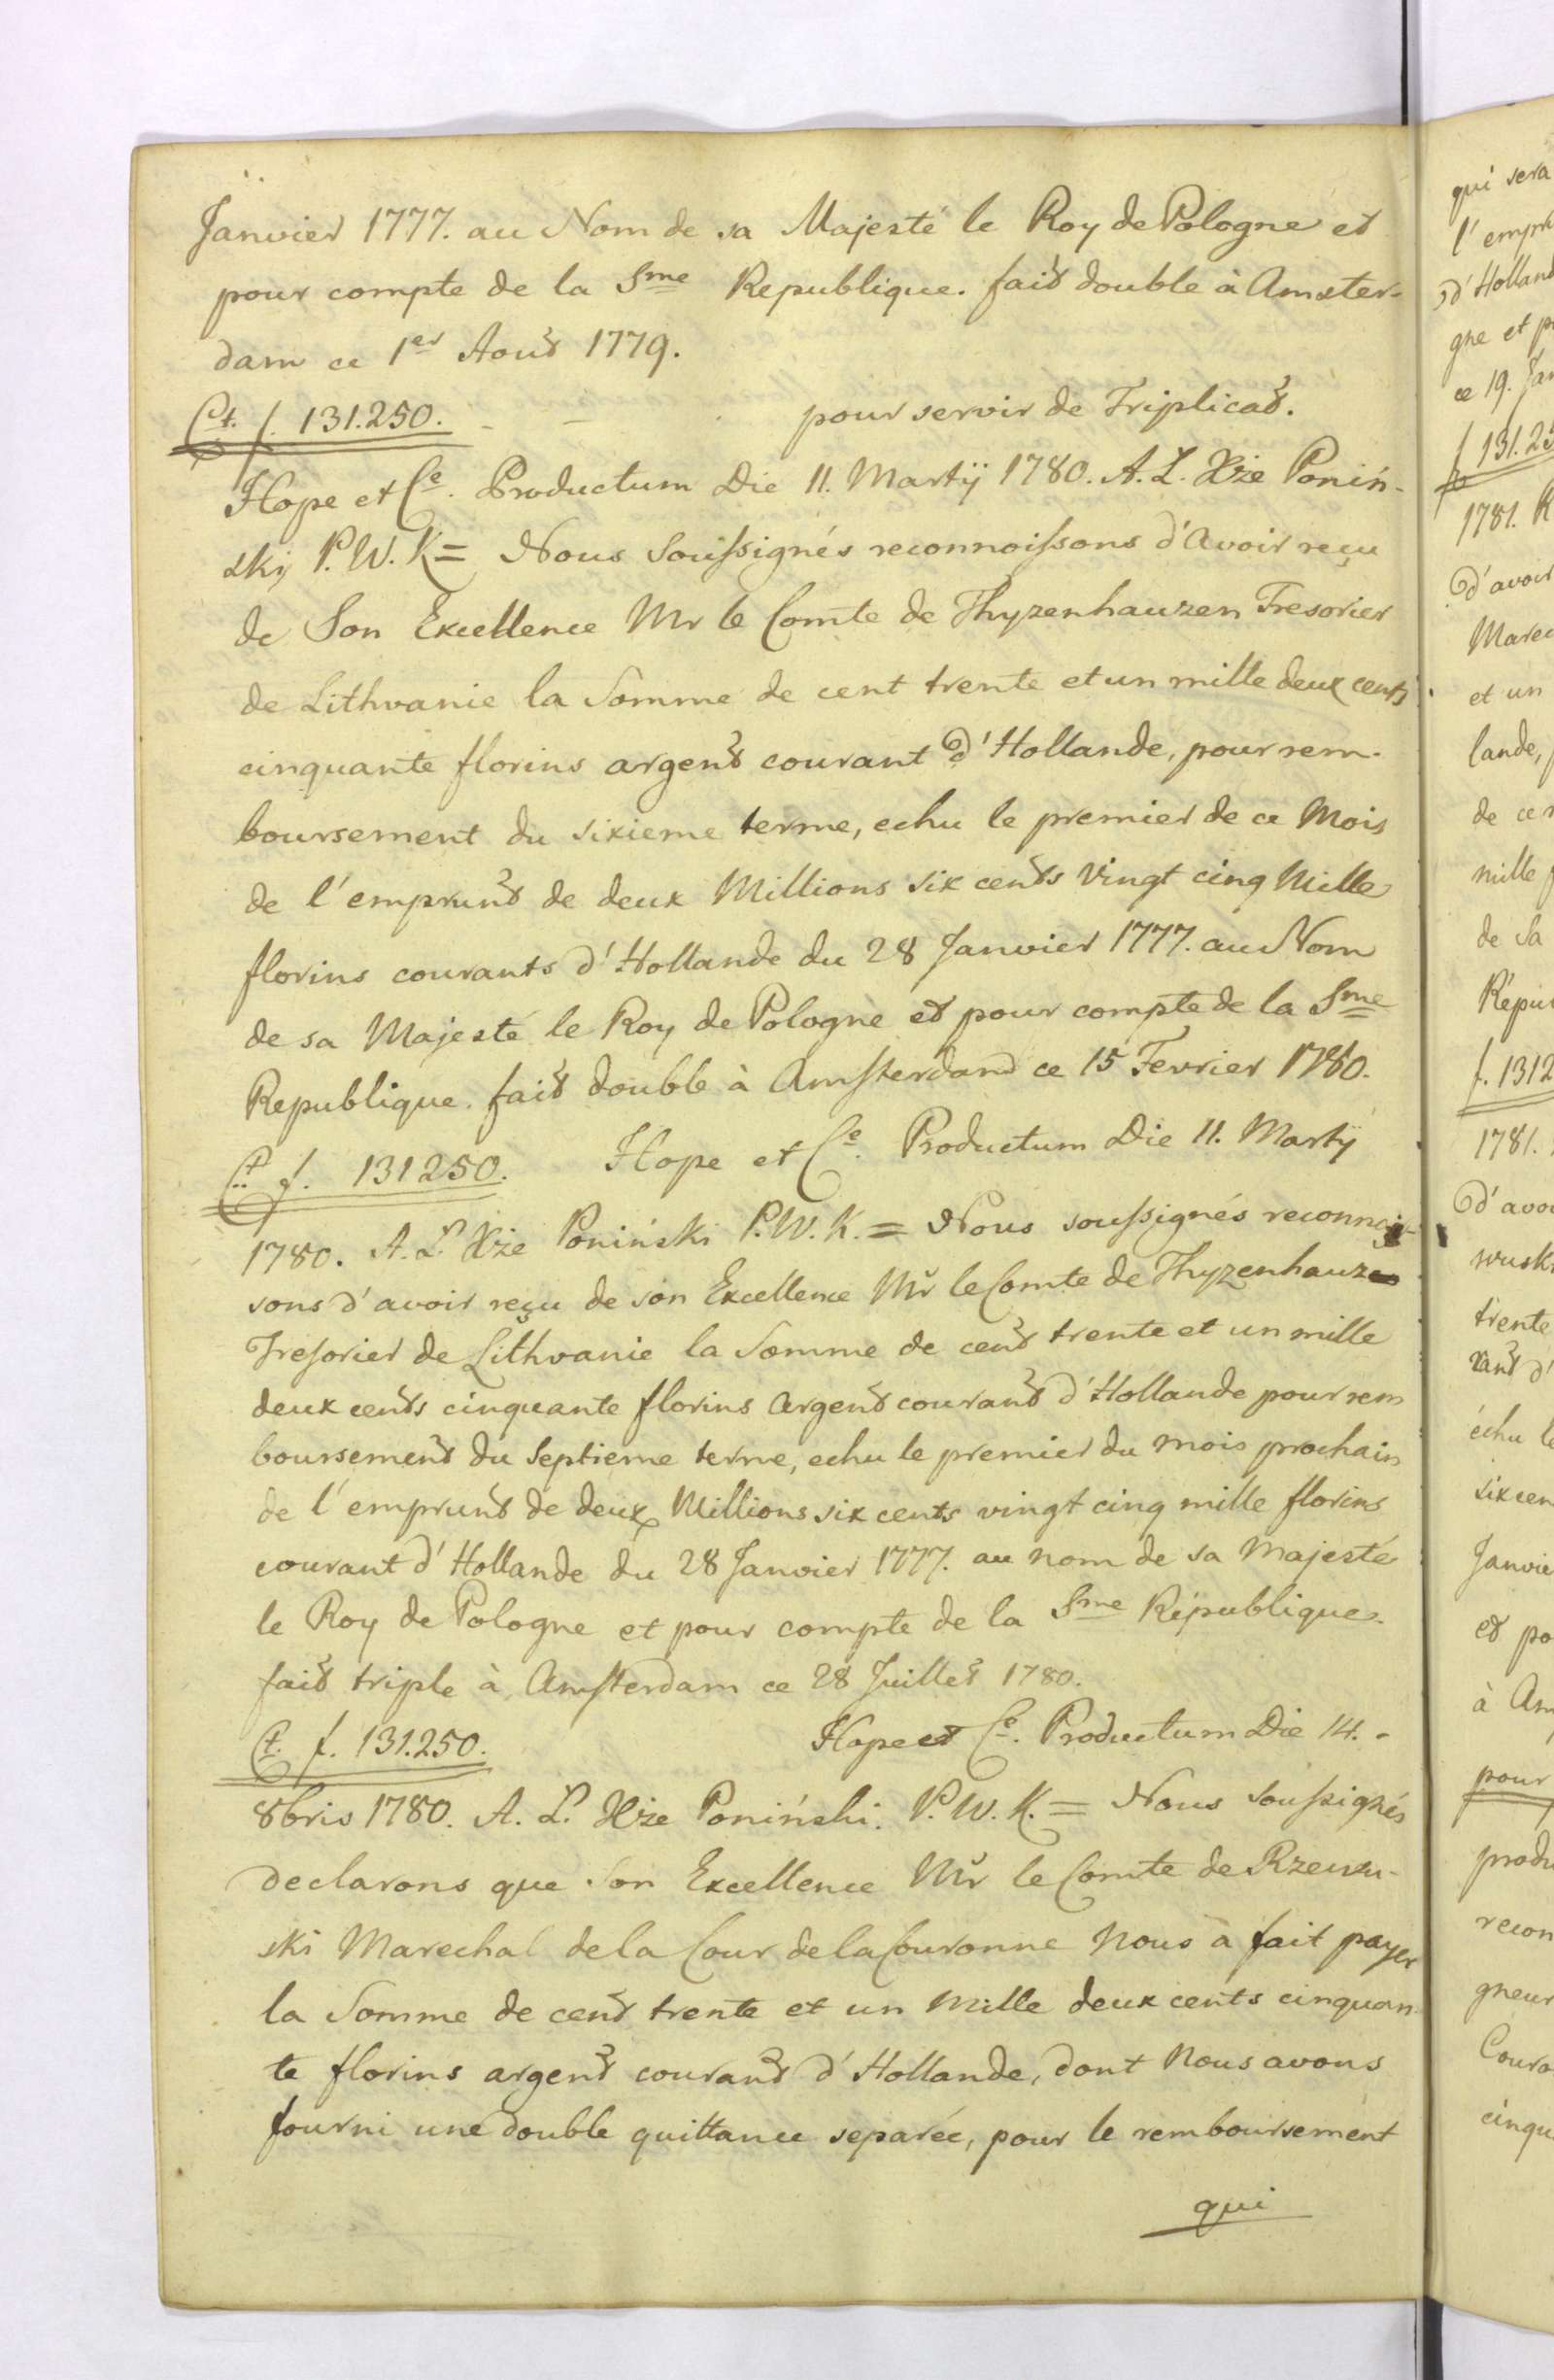 Janvier 1777. au Nom de sa Majesté le Roy de Pologne et
pour compte de la Sme Republique. fait double à Amster-
dam ce 1er Aout 1779.
Ct. f. 131.250. pour servir de Triplicat.
Hope et Ce. Productum Die 11. Martÿ 1780. A. L. Xże Poniń-
ski P. W. K = Nous Soussignés reconnoissons d'Avoir reçu
de Son Excellence Mr le Comte de Thyzenhauzen Tresorier
de Lithvanie la Somme de cent trente et un mille deux cents
cinquante florins argent courant d'Hollande, pour rem-
boursement du sixieme terme, echu le premier de ce Mois
de l'emprunt de deux Millions six cents Vingt cinq Mille
florins courants d'Hollande du 28 Janvier 1777. au Nom
de sa Majesté le Roy de Pologne et pour compte de la Sme
Republique. fait double à Amsterdam ce 15 Fevrier 1780.
Ct. f. 131250. Hope et Ce. Productum Die 11. Martÿ
1780. A. L. Xże Poniński P. W. K. = Nous soussignés reconnois-
sons d'avoir reçu de son Excellence Mr le Comte de Thyzenhauzen
Tresorier de Lithvanie la Somme de cent trente et un mille
deux cents cinquante florins Argent courant d'Hollande pour rem
boursement du Septieme terme, echu le premier du mois prochain
de l'emprunt de deux Millions six cents vingt cinq mille florins
courant d'Hollande du 28 Janvier 1777. au nom de sa Majesté
le Roy de Pologne et pour compte de la Sme République.
fait triple à Amsterdam ce 28 Juillet 1780.
Ct. f. 131.250. Hope et Ce. Productum Die 14. -
8bris 1780. A. L. Xże Poniński. P. W. K. = Nous Soussignés
declarons que Son Excellence Mr le Comte de Rzewu-
ski Marechal de la Cour de la Couronne Nous à fait payer
la Somme de cent trente et un Mille deux cents cinquan-
te florins argent courant d'Hollande, dont Nous avons
fourni une double quittance separée, pour le remboursement
qui
qui sera
l'empr
d'Holland
gne et p
ce 19. Jan
f 131.25
1781. K
d'avoir
Marec
et un
lande,
de ce
mille
de Sa
Répu
f. 1312
1781.
d'avo
wusk
trente
rant d'
échu le
six cen
Janvie
et po
à Am
pour
produ
recon
gneur
Couro
cinqu